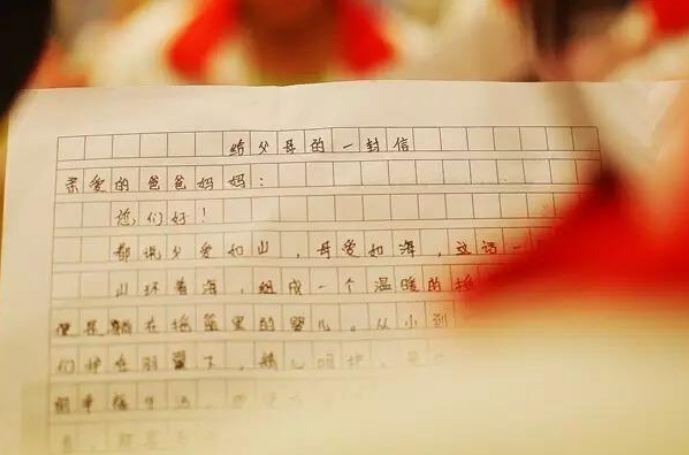 给父母的一封信
亲爱的爸爸妈妈：
您们好！
都说父爱如山，母爱如海，这话一
山环着海，组成一个温暖的摇
便是躺在摇篮里的婴儿。从小到
们护在羽翼下，精心呵护，
生活，